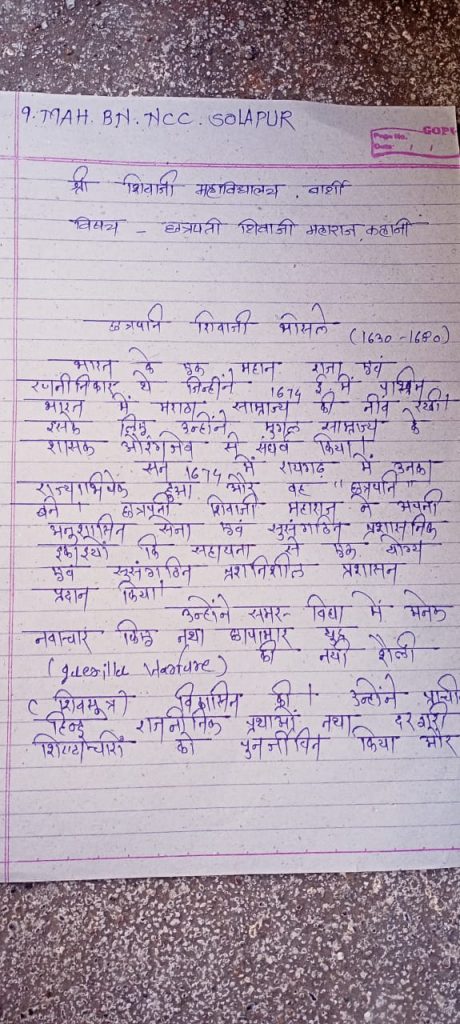 9. MAH. BN. NCC. SOLAPUR
Page No.
Date / /
श्री शिवाजी महाविद्यालय, बार्शी
विषय - छत्रपती शिवाजी महाराज कहानी
छत्रपति शिवाजी भोसले
(1630-1680)
भारत के एक महान राजा एवं
रणनीतिकार थे जिन्होंने 1674 ई. में पश्चिम
भारत में मराठा साम्राज्य की नीव रखी।
इसके लिए उन्होंने मुगल साम्राज्य के
शासक औरंगजेब से संघर्ष किया।
सन 1674 में रायगढ़ में उनका
राज्याभिषेक हुआ और वह "छत्रपति"
बने। छत्रपती शिवाजी महाराज ने अपनी
अनुशासित सेना एवं सुसंगठित प्रशासनिक
इकाइयों कि सहायता से एक योग्य
एवं सुसंगठित प्रगतिशील प्रशासन
प्रदान किया।
उन्होंने समर-विद्या में अनेक
नवाचार किए तथा छापामार युद्ध
(Guerilla Warfare) की नयी शैली
(शिवसूत्र) विकसित की। उन्होंने प्राचीन
हिन्दू राजनीतिक प्रथाओं तथा दरबारी
शिष्टाचारों को पुनर्जीवित किया और